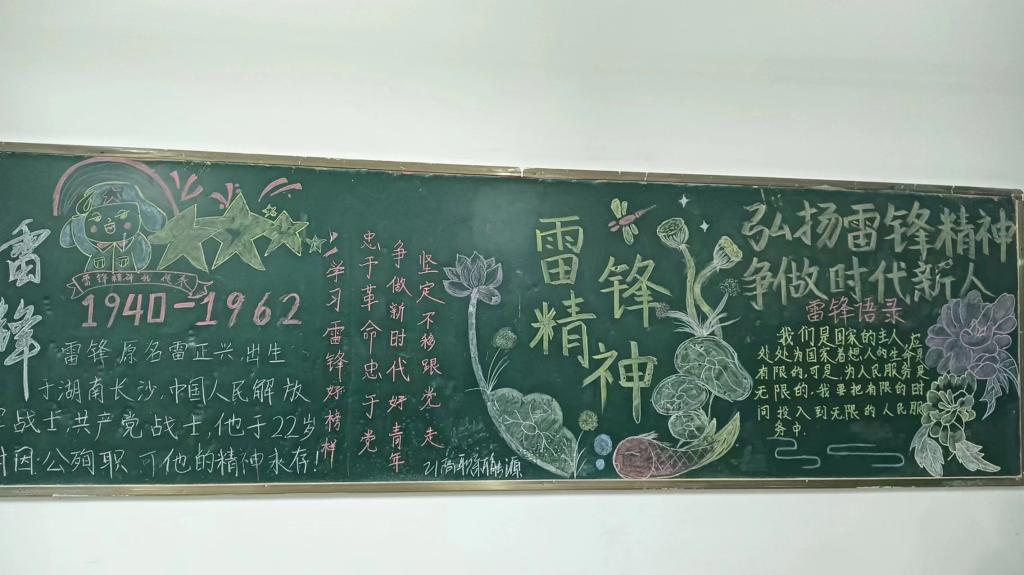 雷锋
雷锋精神永
1940-1962
雷锋,原名雷正兴,出生
于湖南长沙,中国人民解放
军战士,共产党战士,他于22岁
时因公殉职,可他的精神永存!
学习雷锋好榜样
忠于革命忠于党
争做新时代好青年
坚定不移跟党走
21高职
雷锋
精神
弘扬雷锋精神
争做时代新人
雷锋语录
我们是国家的主人,应
处处为国家着想,人的生命是
有限的,可是,为人民服务是
无限的,我要把有限的时
间投入到无限的人民服
务中.